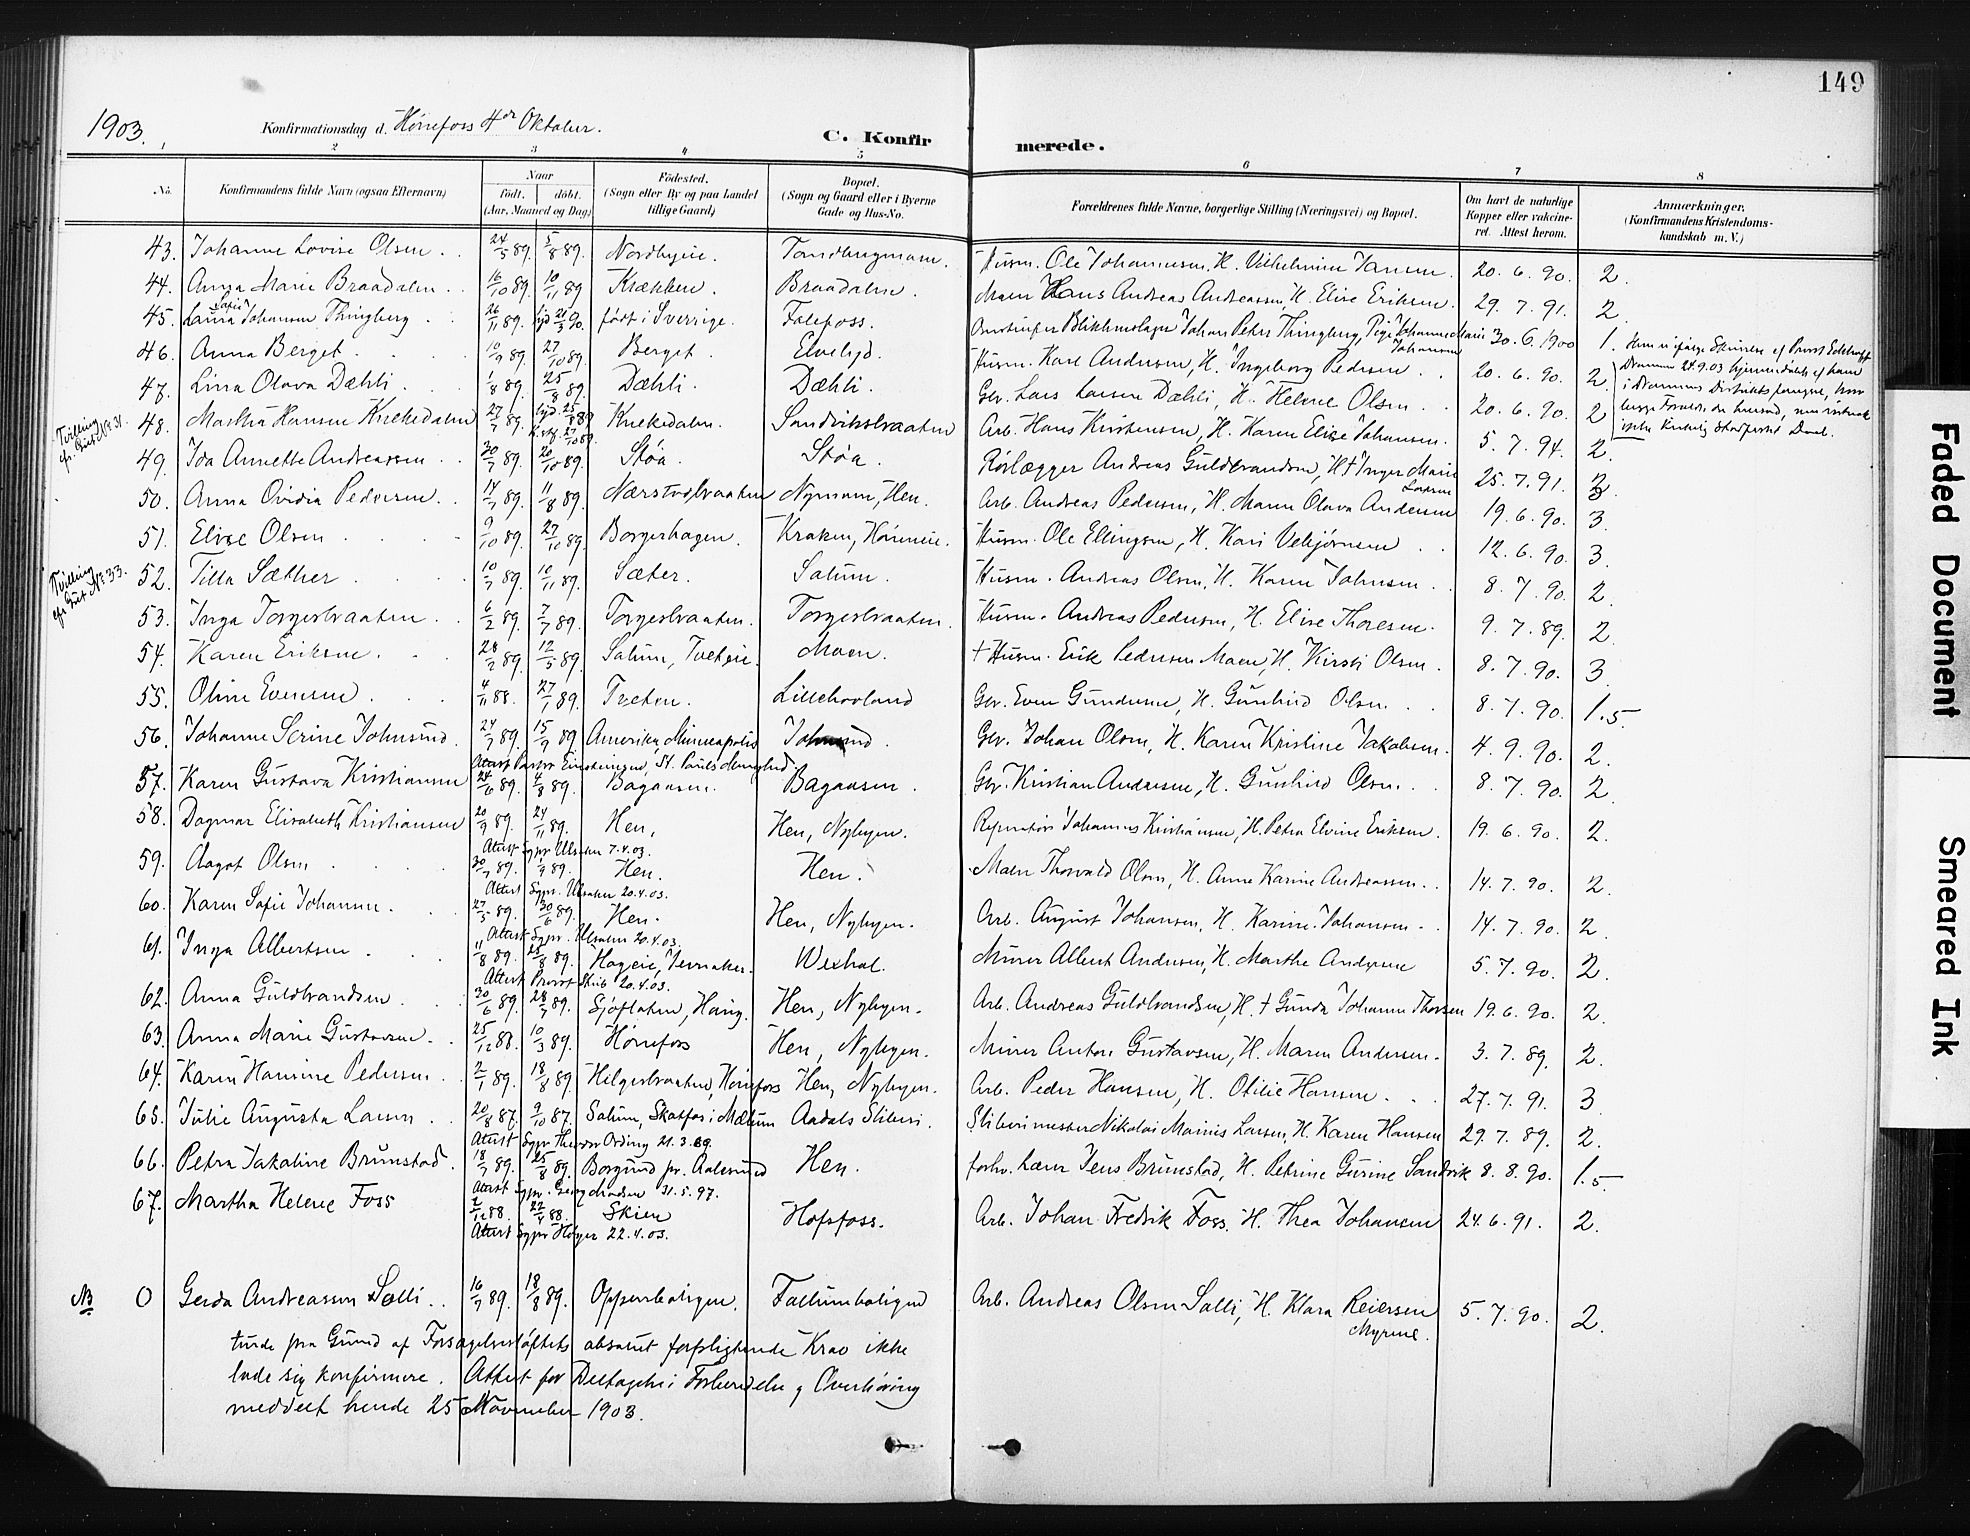 149
1903.
Konfirmationsdag d. Hönefoss 4de Oktober.
C. Konfirmerede.
2 3 4 5 6 7 8
No. Konfirmandens fulde Navn (ogsaa Efternavn) Naar født. døbt. (Aar, Maaned og Dag) Fødested. (Sogn eller By og paa Landet tillige Gaard) Bopæl. (Sogn og Gaard eller i Byerne Gade og Hus-No. Forældrenes fulde Navne, borgerlige Stilling (Næringsvei) og Bopæl. Om havt de naturlige Kopper eller vakcineret. Attest herom. Anmærkninger. (Konfirmandens Kristendomskundskab m. V.)
43. Johanne Lovise Olsen. 24/5 89. 5/8 89. Nordbyeie. Husm. Ole Johannesen, H. Vilhelmine Jansen. 20.6.90. 2.
44. Anna Marie Braadalen. 16/10 89. 10/11 89 Krækken. Braadalen. Maler Hans Andreas Andreassen, H. Elise Eriksen. 29.7.91. 2.
45. Laura Sofie Johansen Thingberg. 26/11 89. født i Sverrige. Follefoss. Blikkenslager Johan Peter Thingberg, Pige Johanne Marie Johansen 30.6.1900 1.
46. Anna Berget. 10/9 89. 27/10 89. Berget. Elvelyd. Husm. Karl Andersen, H. Ingeborg Pedersen. 20.6.90. 2.
47. Lina Olava Dæhli. 1/8 89. 25/8 89. Dæhli. Dæhli. Gbr. Lars Larsen Dæhli, H. Helene Olsen. 20.6.90. 2
Tvilling cfr. Gut No 31.
48. Martha Hansen Knekedalen 27/7 89. Knekedalen. Sandviksbraaten Arb. Hans Kristensen, H. Karen Elise Johansen. 5.7.94. 2.
49. Ida Annette Andreassen 30/7 89. 20/10 89. Støa. Støa. Rørlægger Andreas Guldbrandsen, H. † Inger Marie Larsen 25.7.91. 2
50. Anna Ovidia Pedersen. 14/7 89. 11/8 89. Nærstadbraaten Nymoen, Hen. Arb. Andreas Pedersen, H. Maren Olava Andersen 19.6.90. 3.
51. Elise Olsen 9/10 89. 27/10 89. Borgerhagen. Kraken, Hønneie. Husm. Ole Ellingsen, H. Kari Vebjørnsen 12.6.90. 3.
Tvilling cfr Gut No 33.
52. Tilla Sæther 10/7 89. 10/11 89. Sæter. Solum. Husm. Andreas Olsen, H. Karen Johnsen. 8.7.90. 2.
53. Inga Torgersbraaten. 6/2 89. 7/7 89. Torgersbraaten. Torgersbraaten. Husm. Andreas Pedersen, H. Elise Thoresen. 9.7.89. 2.
54. Karen Eriksen. 28/2 89. 12/5 89. Solum, Tveteie. Moen. † Husm. Erik Pedersen Moen, H. Kirsti Olsen. 8.7.90. 3.
55. Oline Evensen 4/11 88. 27/1 89. Tveten. Lillehovland Gbr. Even Gundersen, H. Gunhild Olsen. 8.7.90. 1.5
56. Johanne Serine Johnsrud. 24/7 89. 15/9 89. Amerika, Minneapolis Johnsrud. Gbr. Johan Olsen, H. Karen Kristine Jakobsen. 4.9.90. 2.
57. Karen Gustava Kristiansen 24/6 89. 4/8 89. Bagaasen. Bagaasen. Gbr. Kristian Andersen, H. Gunhild Olsen. 8.7.90. 2.
58. Dagmar Elisabeth Kristiansen 20/9 89. 24/11 89. Hen. Hen, Nybyen. Reparatør Johannes Kristiansen, H. Petra Elvine Eriksen. 19.6.90. 2.
Attest Sgpr Ulsaker 7.4.03.
59. Aagot Olsen 89. 89. Hen. Hen. Maler Thorvald Olsen, H. Anne Karine Andreassen. 14.7.90. 2.
Attest Sgpr. Ulsaker 20.4.03.
60. Karen Sofie Johansen. 27/5 89. 30/6 89. Hen. Hen, Nybyen. Arb. August Johansen, H. Karine Johansen. 14.7.90. 2.
Attest Sgpr. Ulsaker 20.4.03.
61. Inga Albertsen 11/8 89. 25/8 89. Hageie, Jevnaker. Wexhal. Murer Albert Andersen, H. Marthe Andersen 5.7.90. 2.
Attest Provst Skib 20.4.03.
62. Anna Guldbrandsen 30/6 89. 28/7 89. Sjøflaten, Houg. Hen, Nybyen. Arb. Andreas Guldbrandsen, H. † Gunda Johanne Thorsen 19.6.90. 2.
63. Anna Marie Gustavsen. 25/12 88. 10/3 89. Hönefoss Hen, Nybyen. Murer Anton Gustavsen, H. Maren Andersen. 3.7.89. 2.
64. Karen Hansine Pedersen. 2/1 89. 18/8 89. Helgesbraaten, Hönefoss Hen, Nybyen. Arb. Peder Hansen, H. Otilie Hansen. 27.7.91. 3
65. Julie Augusta Larsen 20/8 87. 9/10 87. Solum, Skotfos i Mælum Aadals Sliberi. Slibermester Nikolai Mainis Larsen, H. Karen Hansen 29.7.89. 2.
Attest Sgpr Theodor Ording 21.3.89.
66. Petra Jakobine Brunstad. 18/7 89. 25/8 89. Borgund pr. Aalesund Hen. forhv. Lærer Jens Brunstad, H. Petrine Gurine Sandvik 8.8.90. 1.5
Attest Sgpr. Georg Madsen 31.5.97.
67. Martha Helene Foss 2/12 88. 22/4 88. Skien Hofsfoss. Arb. Johan Fredrik Foss, H. Thea Johansen 24.6.91. 2.
Attest Sgpr Høyer 22.4.03.
NB O Gerda Andreassen Solli. 16/7 89. 18/8 89. Oppenboligen. Follumboligen Arb. Andreas Olsen Solli, H. Klara Reiersen Myrene. 5.7.90. 2.
turde paa Grund af Forsagelsesløftets absolut forpligtende Krav ikke
lade sig konfirmere. Attest for Deltagelse i Forberedelse og Overhøring
meddelt hende 25 November 1903.
Faded Document
Smeared Ink